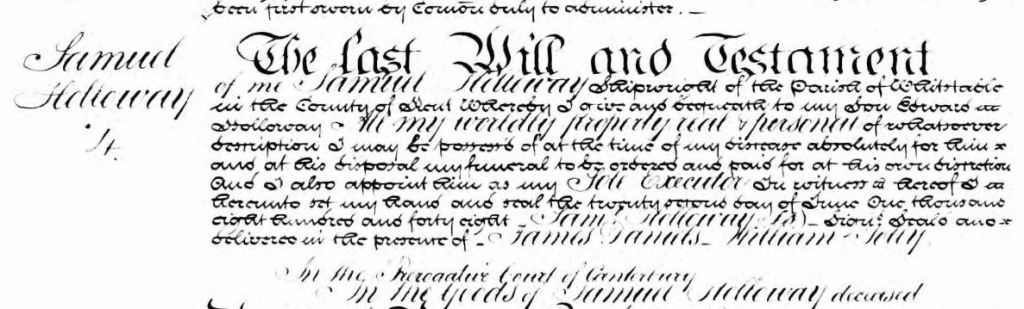 been first sworn by Comon duly to administer. —
Samuel
Holloway
4.
The Last Will and Testament
of me Samuel Holloway Shipwright of the Parish of Whitstable
in the County of Kent Whereby I give and bequeath to my Son Edward
Holloway All my worldly property real & personal of whatsoever
description I may be possess of at the time of my disease absolutely for him x
and at his disposal my funeral to be ordered and paid for at his own discretion
And I also appoint him as my Sole Executor In witness hereof I
hereunto set my hand and seal the twenty second day of June One thousand
eight hundred and forty eight – Saml. Holloway (LS) – Signd. Seald and x
delivered in the presence of – James Daniels – William
In the Prerogative Court of Canterbury
In the Goods of Samuel Holloway deceased